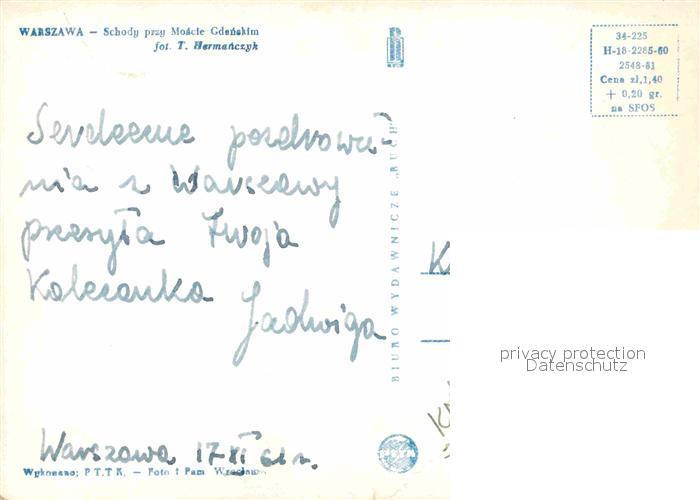 WARSZAWA — Schody przy Moście Gdańskim
fot. T. Hermańczyk
34-225
H-18-2285-60
2548-61
Cena zł,1,40
+ 0,20 gr.
na SFOS
Serdeczne pozdrowie-
nia z Warszawy
przesyła Twoja
Koleżanka Jadwiga
BIURO WYDAWNICZE „RUCH”
privacy protection
Datenschutz
Warszawa 17 XI 61 r.
Wykonano: P.T.T.K. — Foto i Pam Wrocław